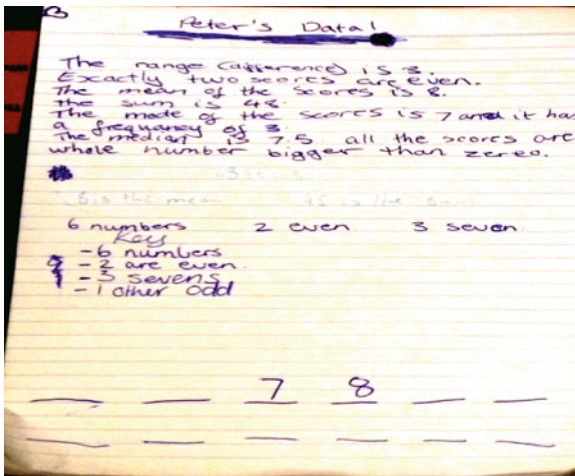 Peter's Data!
The range (difference) is 3.
Exactly two scores are even.
The mean of the scores is 8.
the sum is 48.
The mode of the scores is 7 and it has
a frequancy of 3.
The median is 7.5 all the scores are
whole number bigger than zereo.
8 is the mean 48 is the sum
6 numbers 2 even 3 seven.
Key
-6 numbers
-2 are even.
-3 sevens
-1 other odd
7 8